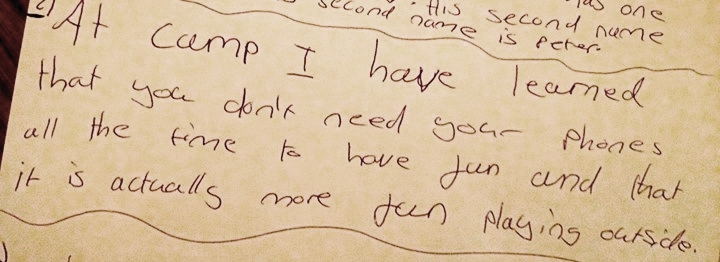 has one
second . His second name
name is Peter.
2) At camp I have learned
that you don't need your phones
all the time to have fun and that
it is actually more fun playing outside.